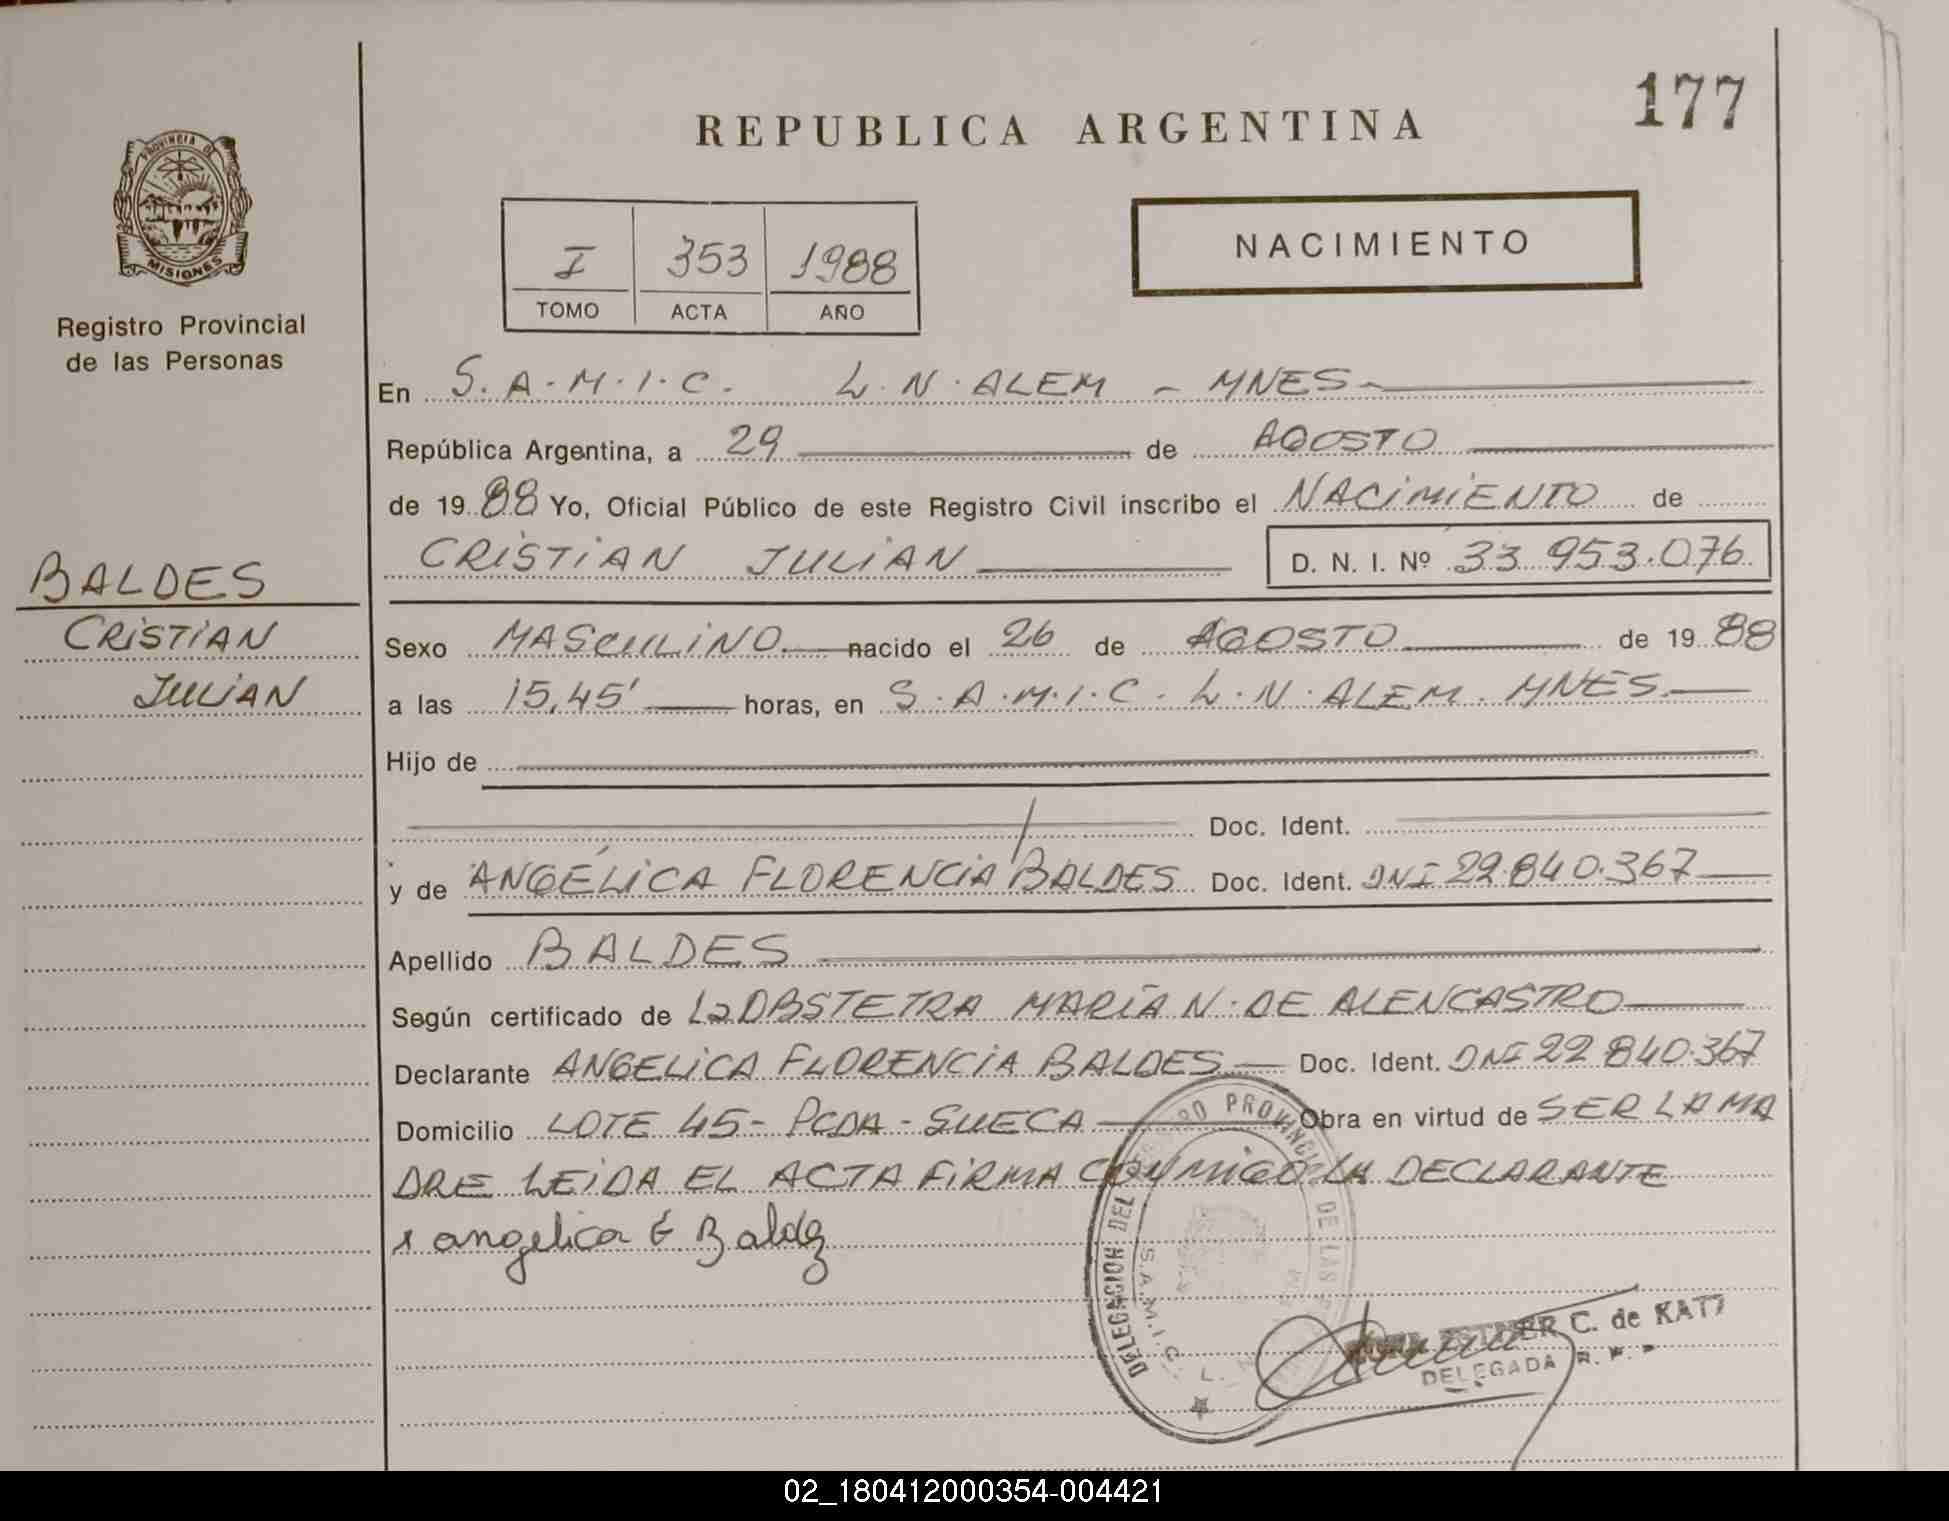 177
REPUBLICA ARGENTINA
PROVINCIA DE
MISIONES
Registro Provincial
de las Personas
I 353 1988
TOMO ACTA AÑO
NACIMIENTO
En S.A.M.I.C. L.N.ALEM - MNES-
República Argentina, a 29 de AGOSTO
de 1988 Yo, Oficial Público de este Registro Civil inscribo el NACIMIENTO de
CRISTIAN JULIAN D. N. I. Nº 33 953.076
BALDES
CRISTIAN
JULIAN
Sexo MASCULINO nacido el 26 de AGOSTO de 1988
a las 15,45' horas, en S.A.M.I.C. L.N.ALEM. MNES.
Hijo de
Doc. Ident.
y de ANGÉLICA FLORENCIA BALDES Doc. Ident. DNI 22.840.367
Apellido BALDES
Según certificado de La OBSTETRA MARÍA N. DE ALENCASTRO
Declarante ANGELICA FLORENCIA BALDES Doc. Ident. DNI 22 840.367
Domicilio LOTE 45- PCDA - SUECA Obra en virtud de SER LA MA
DRE LEIDA EL ACTA FIRMA CONMIGO LA DECLARANTE
angelica
DELEGACION DEL PROVINCIAL DE LAS
S.A.M.I.C. L.
ESTHER C. de KATZ
DELEGADA R. P. P
02_180412000354-004421